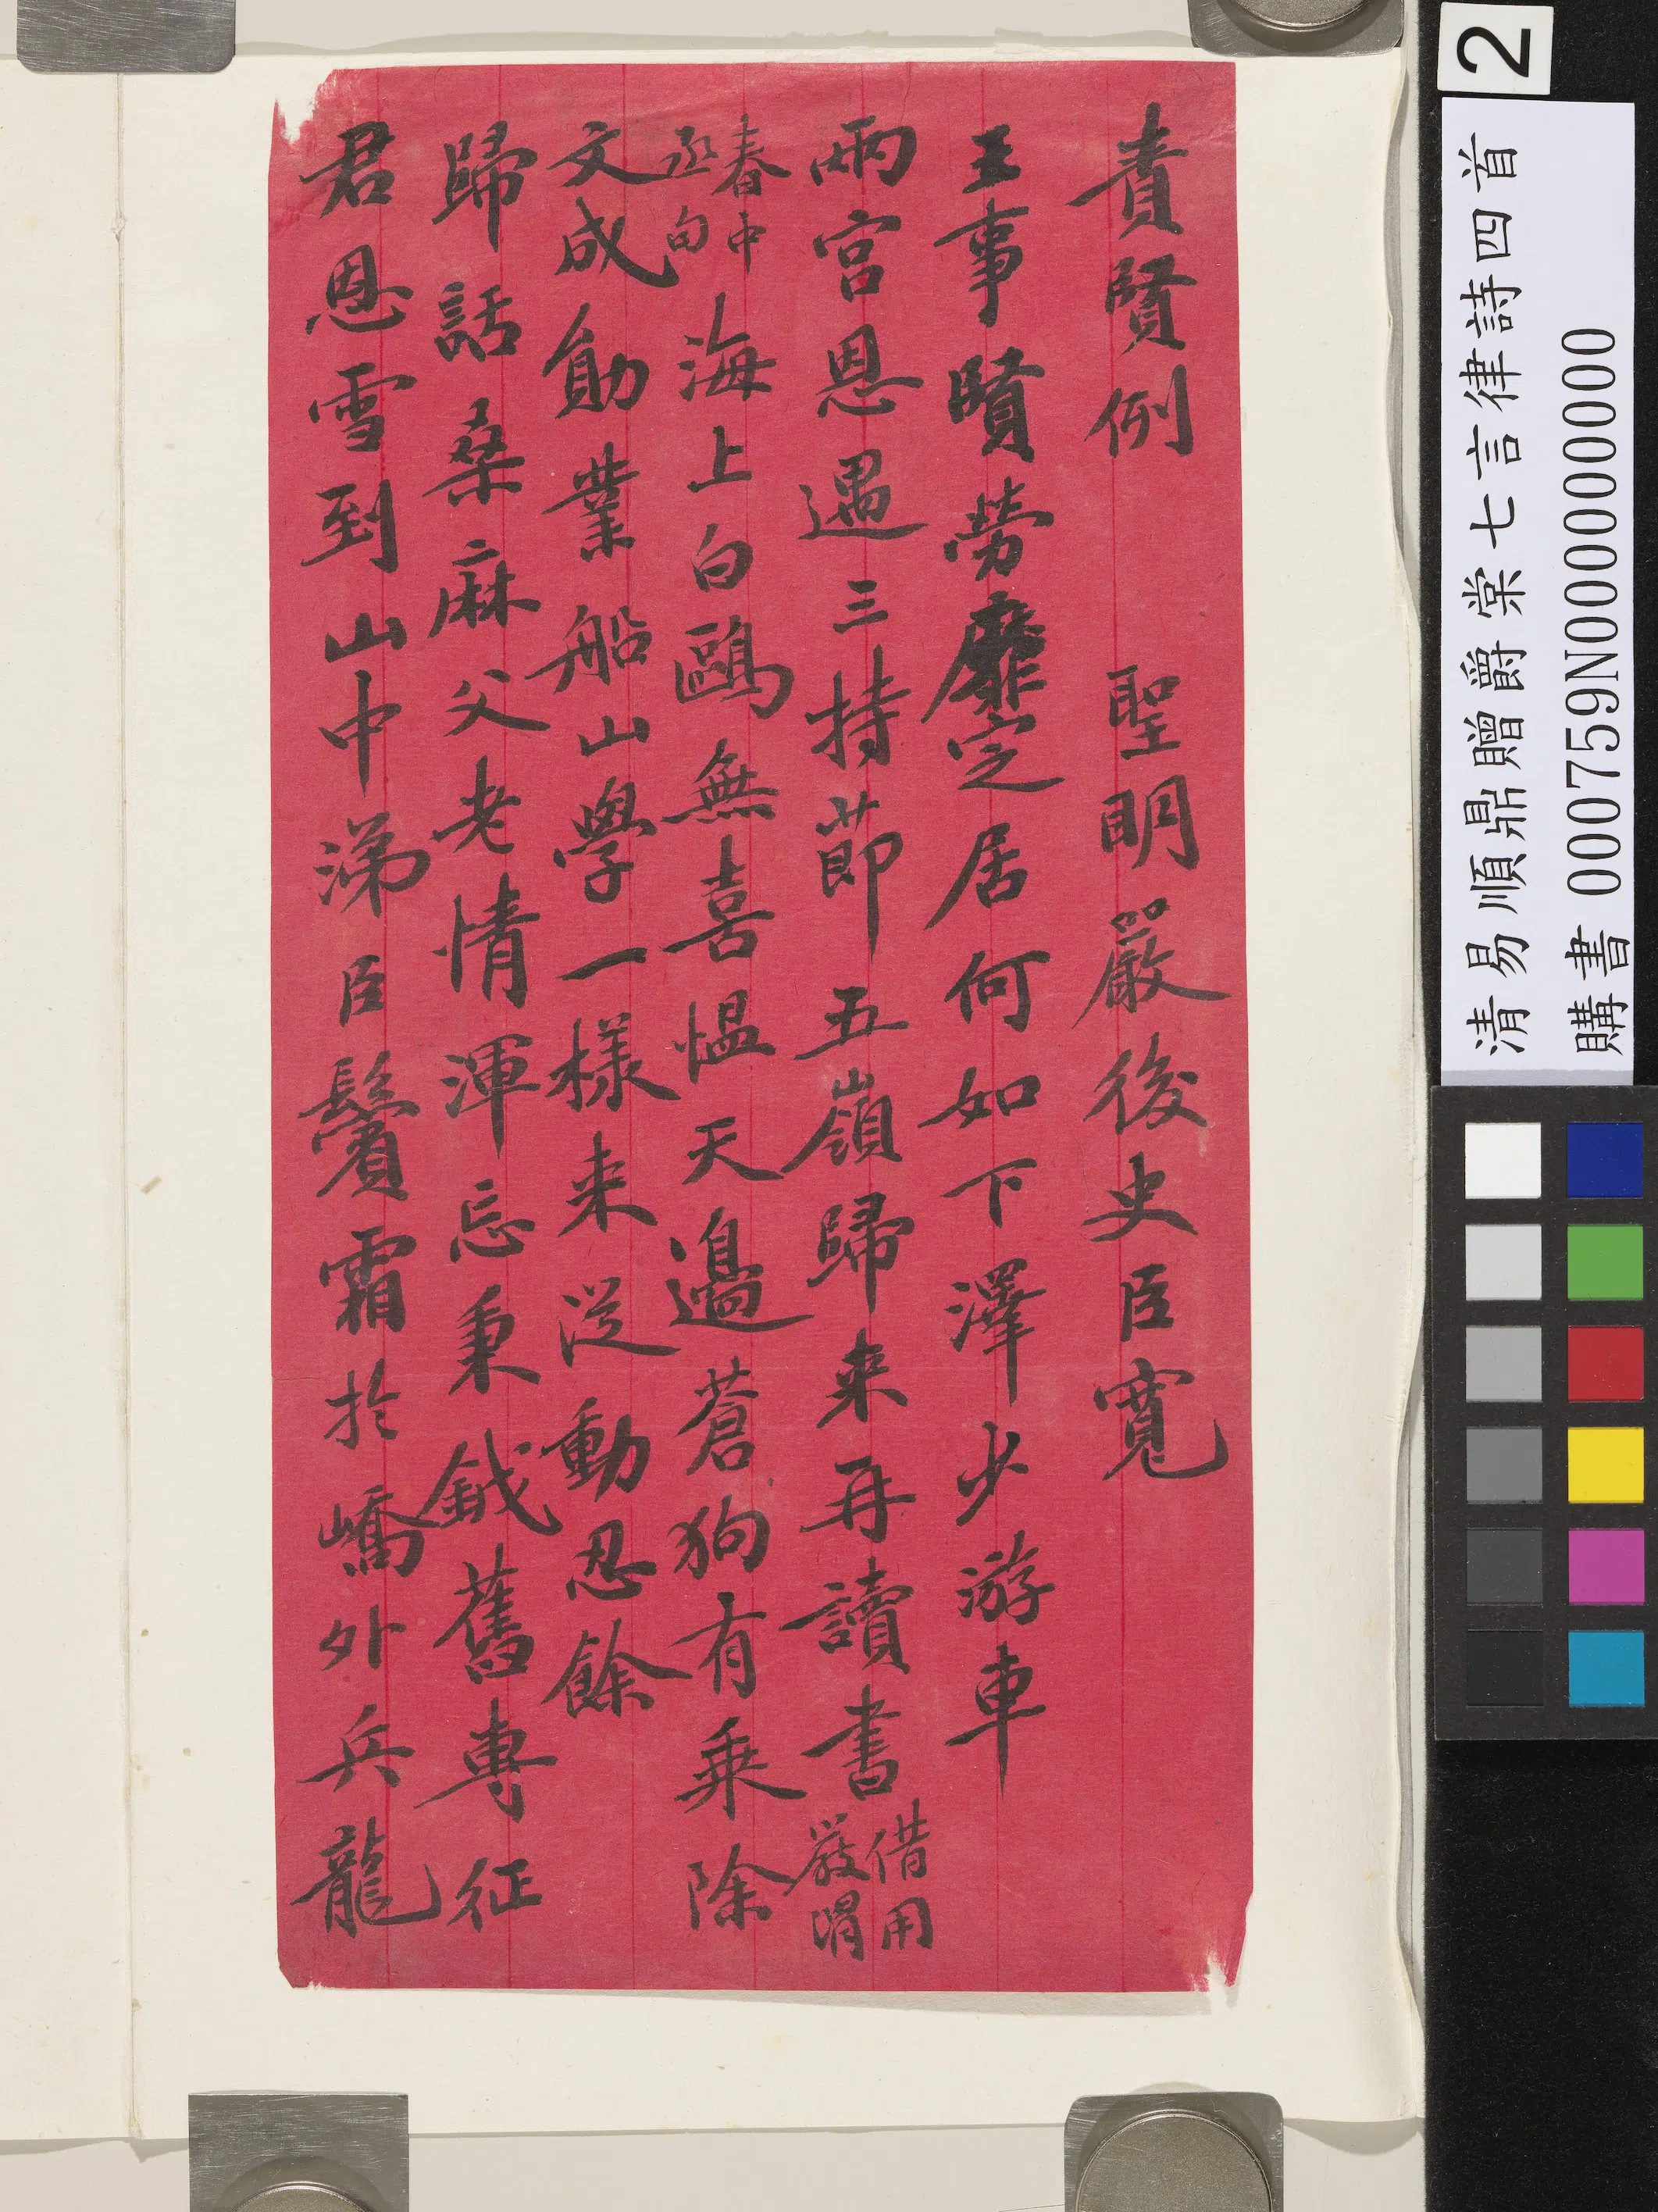 責賢例　聖明嚴後史臣寬
王事賢勞靡定居何如下澤少游車
兩宮恩遇三持節五嶺歸来再讀書借用
嚴
春中
丞句海上白鷗無喜慍天邊蒼狗有乘除
文成勛業船山學一樣来從動忍餘
歸話桑麻父老情渾忘秉鉞舊專征
君恩雪到山中涕臣鬢霜於嶠外兵龍
2
清易順鼎贈爵棠七言律詩四首
購書 000759N000000000